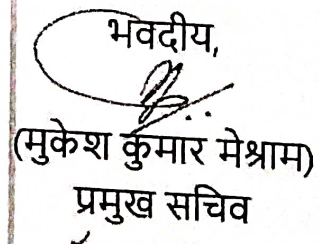 भवदीय,
(मुकेश कुमार मेश्राम)
प्रमुख सचिव